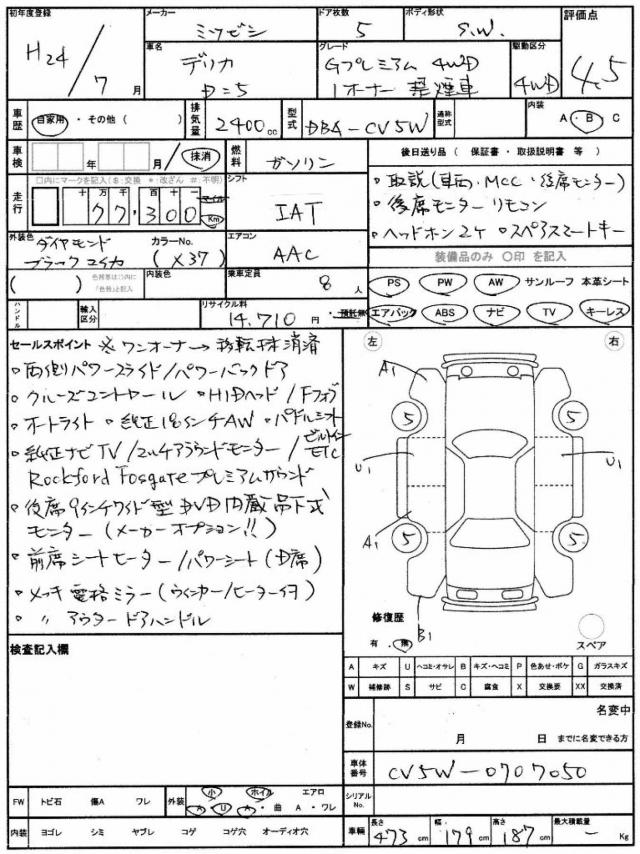 初年度登録 メーカー ドア枚数 ボディ形状 評価点
H24/7月 ミツビシ 5 S.W. 4.5
車名 グレード 駆動区分
デリカ Gプレミアム 4WD 4WD
D=5 1オーナー 禁煙車
車歴 自家用・その他( ) 排気量 2400cc 型式 DBA-CV5W 通称型式 内装 A・B・C
車検 年 月 抹消 燃料 ガソリン 後日送り品 ( 保証書・取扱説明書 等 )
走行 □内にマークを記入($:交換 *:改ざん #:不明) シフト
十万 千 百 十 一 マイル
77,300 Km IAT
・取説(車両・MCC・後席モニター)
・後席モニターリモコン
・ヘッドホン2ケ ・スペアスマートキー
外装色 ダイヤモンド カラーNo. エアコン 装備品のみ ○印 を記入
ブラックマイカ (X37) AAC
( ) 色替車は○内に「色替」と記入 内装色 乗車定員 8人
PS PW AW サンルーフ 本革シート
エアバック ABS ナビ TV キーレス
ハンドル 輸入区分 リサイクル料 14,710円・預託無
セールスポイント ※ワンオーナー→移転抹消済
・両側パワースライド/パワーバックドア
・クルーズコントロール ・HIDヘッド/Fフォグ
・オートライト ・純正18インチAW ・パドルシフト
・純正ナビTV/マルチアラウンドモニター/ビルトインETC
Rockford Fosgateプレミアムサウンド
・後席9インチワイド型DVD内蔵吊下式
モニター(メーカーオプション!!)
・前席シートヒーター/パワーシート(D席)
・メッキ電格ミラー(ウインカー/ヒーター付)
・〃 アウタードアハンドル
左 右
A1
5 5
U1 U1
A1
5 5
B1
修復歴
有・無
スペア
検査記入欄
A キズ U ヘコミ・オサレ B キズ・ヘコミ P 色あせ・ボケ G ガラスキズ
W 補修跡 S サビ C 腐食 X 交換要 XX 交換済
登録No. 名変中
月 日 までに名変できる方
車体番号 CV5W-0707050
FW トビ石 傷A ワレ 外装 小 ホイル エアロ
A U A ・曲 A・ワレ
シリアルNo.
内装 ヨゴレ シミ ヤブレ コゲ コゲ穴 オーディオ穴
車輌 長さ 473cm 幅 179cm 高さ 187cm 最大積載量 - Kg